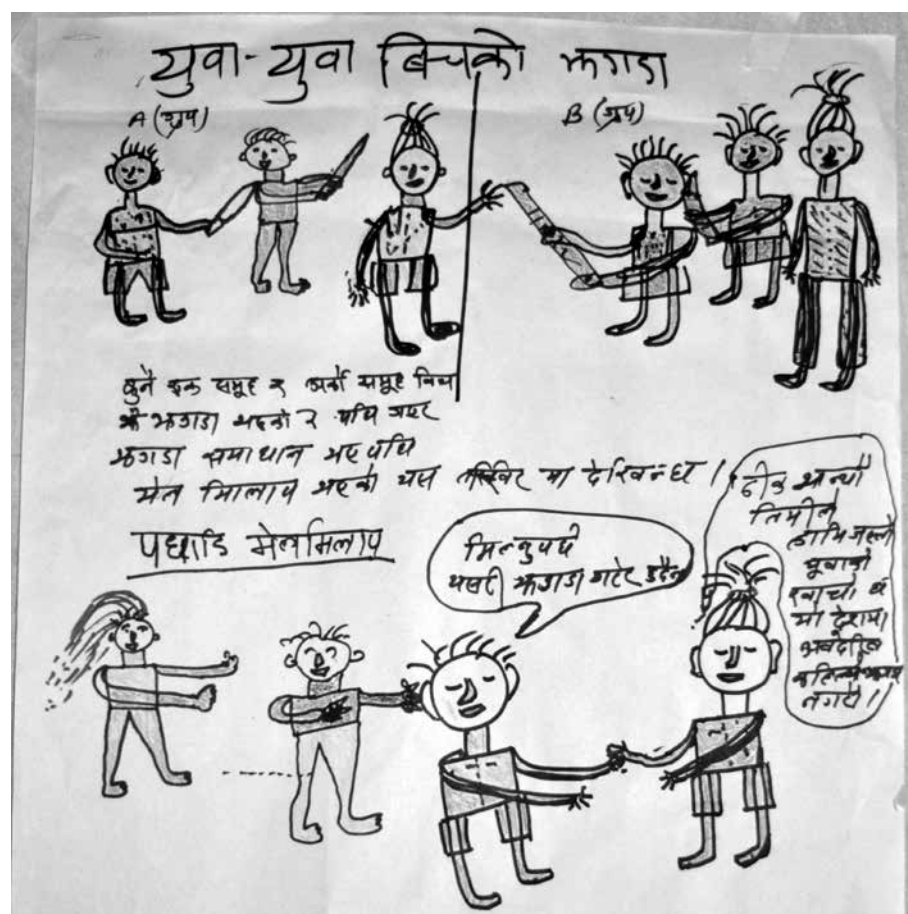 युवा-युवा बिचको झगडा
A (ग्रुप)
B (ग्रुप)
कुनै एक समूह र अर्को समूह बिच
झगडा भएको र पछि गएर
झगडा समाधान भए पछि
मेल मिलाप भएको यस तस्विर मा देखिन्छ ।
पछाडि मेलमिलाप
मिल्नुपर्छ
यसरी झगडा गरेर हुदैन
ठीक भन्यौ
तिमीले
हामि जस्तो
युवाको
खाचो छ
यो देशमा
अबदेखि
झगडा
नगरौ ।